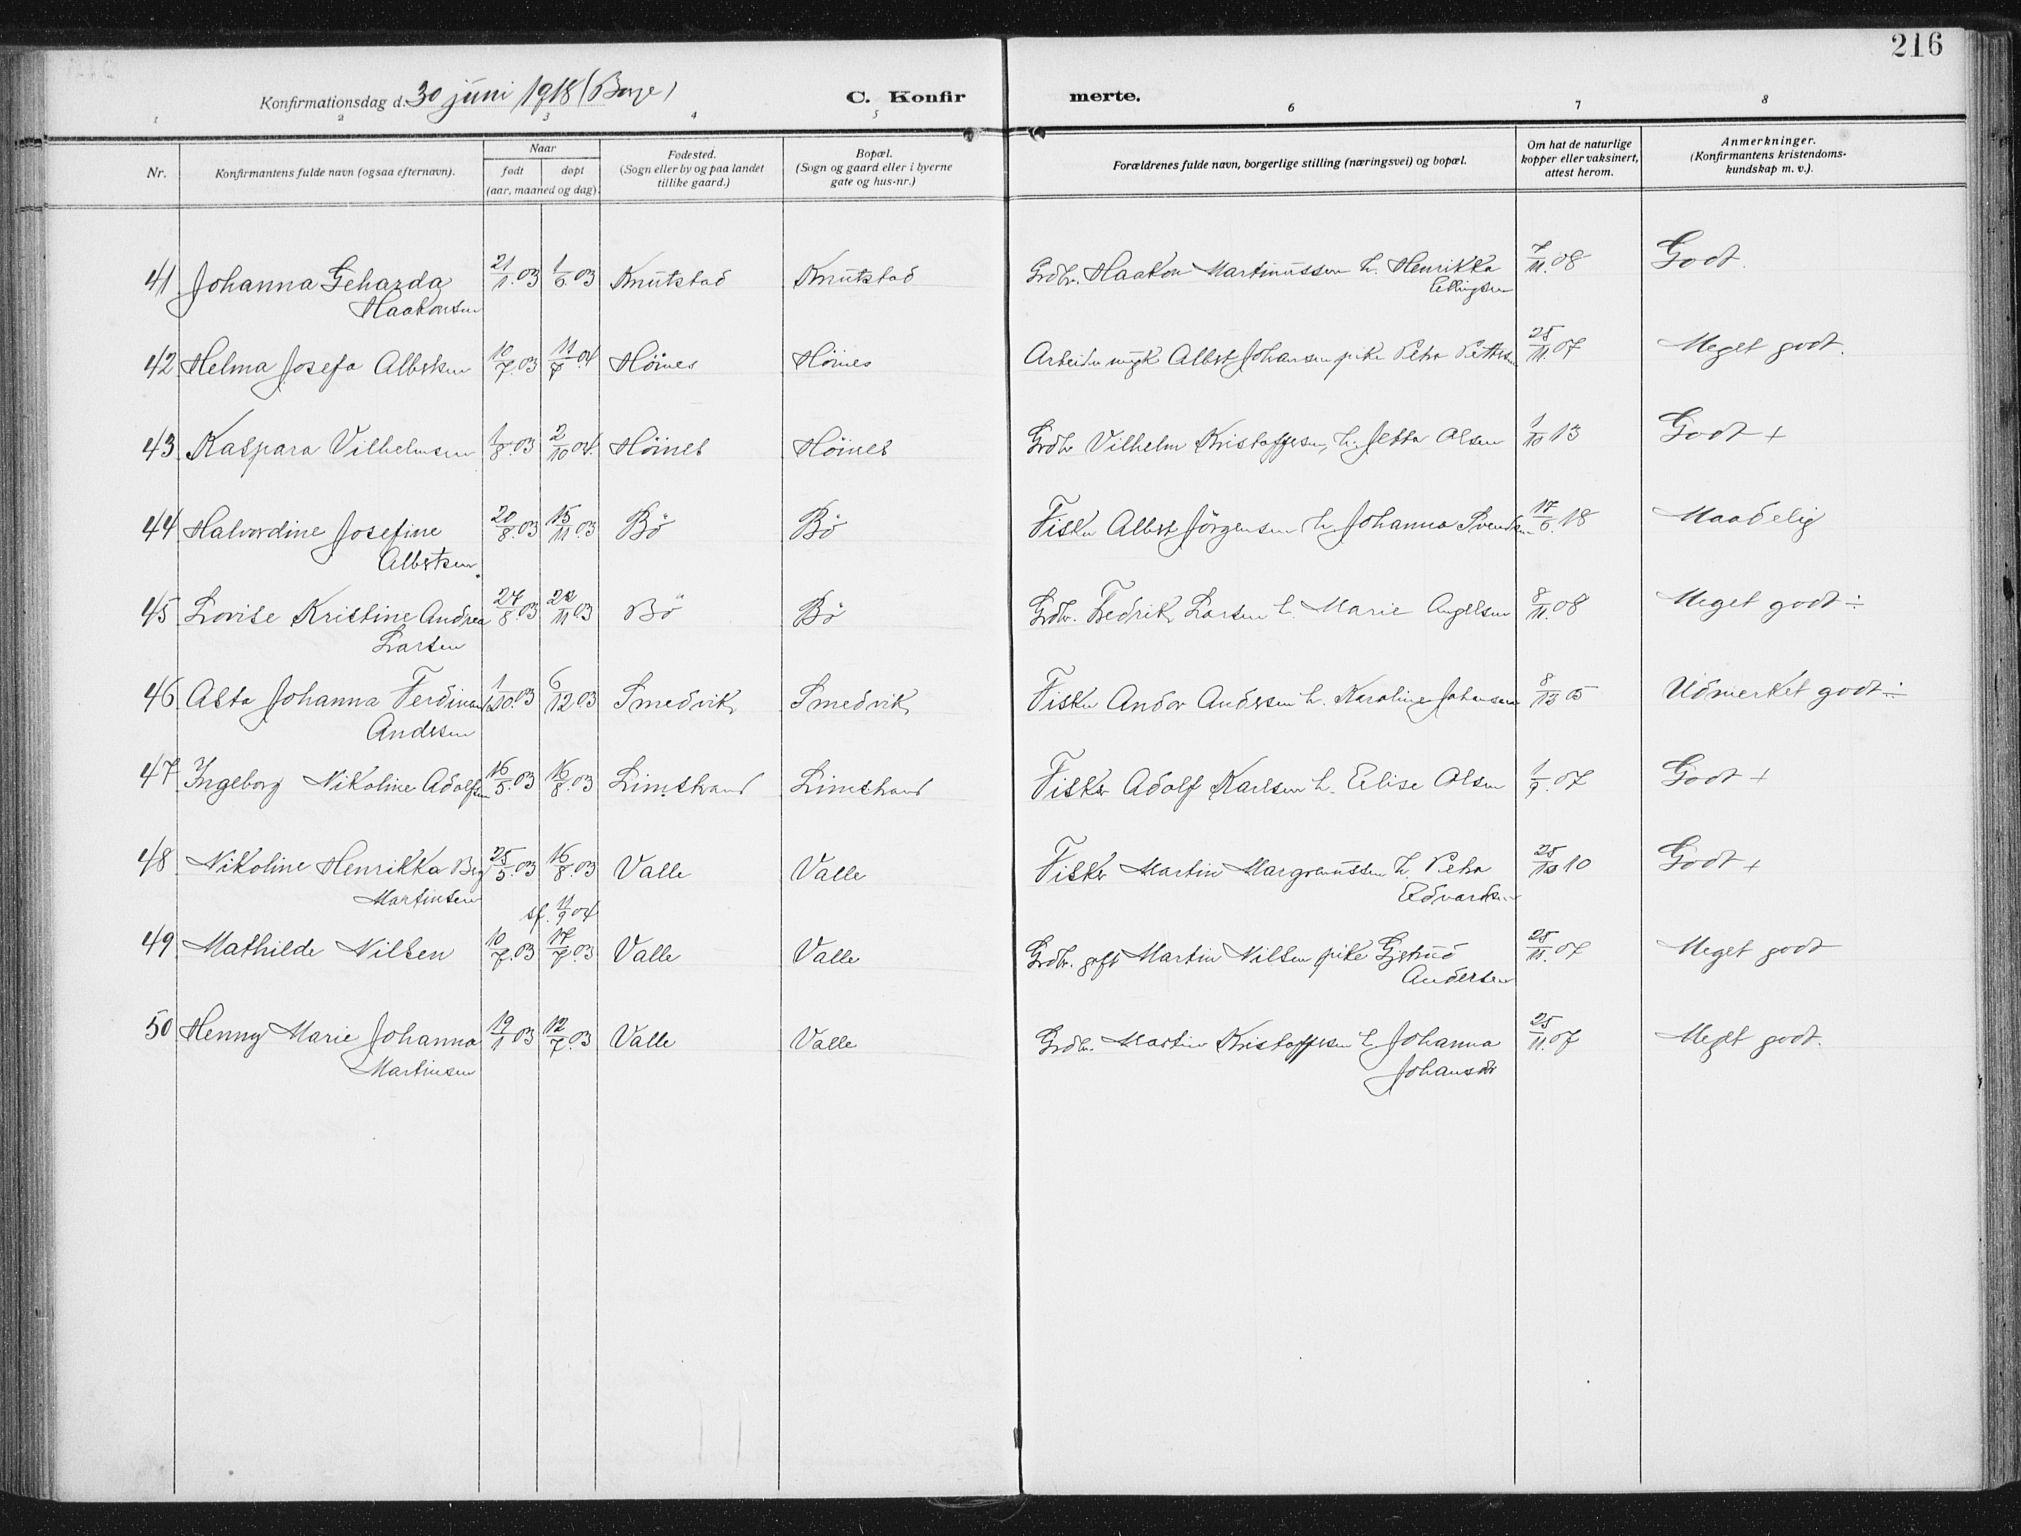 216
Konfirmationsdag d. 30 juni 1918 (Borge) C. Konfir merte.
1 2 3 4 5 6 7 8
Nr. Konfirmantens fulde navn (ogsaa efternavn). Naar født døpt (aar, maaned og dag). Fødested. (Sogn eller by og paa landet tillike gaard.) Bopæl. (Sogn og gaard eller i byerne gate og hus-nr.) Forældrenes fulde navn, borgerlige stilling (næringsvei) og bopæl. Om hat de naturlige kopper eller vaksinert, attest herom. Anmerkninger. (Konfirmantens kristendoms-kundskap m. v.).
41 Johanna Geharda 21/1.03 1/6 03 Knutstad Knutstad Grdbr. Haakon Martinussen h. Henrikka 7/11.08 Godt.
Haakonsen Ellingsen
42 Helma Josefa Albertsen 10/7.03 11/9.04 Høines Høines Arbeider ungk Albert Johansen pike Petra Pettersen 25/11 07 Meget godt.
43 Kaspara Vilhelmsen 1/8.03 2/10 04. Høines Høines Grdbr Vilhelm Kristoffersen, h. Jetta Olsen 1/10 13 Godt +
44 Halvordine Josefine 20/8.03 15/11.03 Bö Bö Fisker Albert Jörgensen h. Johanna Svendsen 17/6.18 Maadelig
Albertsen.
45 Lovise Kristine Andrea 27/8.03 22/11 03 Bö Bö Grdbr. Fedrik Larsen h. Marie Angelsen 8/11.08 Meget godt ÷
Larsen
46 Asta Johanna Ferdinanda 1/10.03 6/12 03 Smedvik Smedvik Fisker Andor Andersen h. Karoline Johansen 8/12 05 Udmerket godt ÷
Andersen
47 Ingeborg Nikoline Adolfsen 16/5.03 16/8.03 Limstrand Limstrand Fisker Adolf Karlsen h. Elise Olsen 1/9.07 Godt +
48 Nikoline Henrikka Berg 25/5.03 16/8.03 Valle Valle Fisker Martin Margonussen h. Petra 25/10 10 Godt +
Martinsen sf. 11/9 04 Edvardsen
49 Mathilde Nilsen 10/7.03 17/7.03 Valle Valle Grdbr. gift Martin Nilsen pike Gjetrud 25/11.07 Meget godt
Andersen
50 Henny Marie Johanna 19/1 03 12/7.03 Valle Valle Grdbr. Martin Kristoffersen h. Johanna 25/11.07 Meget godt.
Martinsen Johansdr